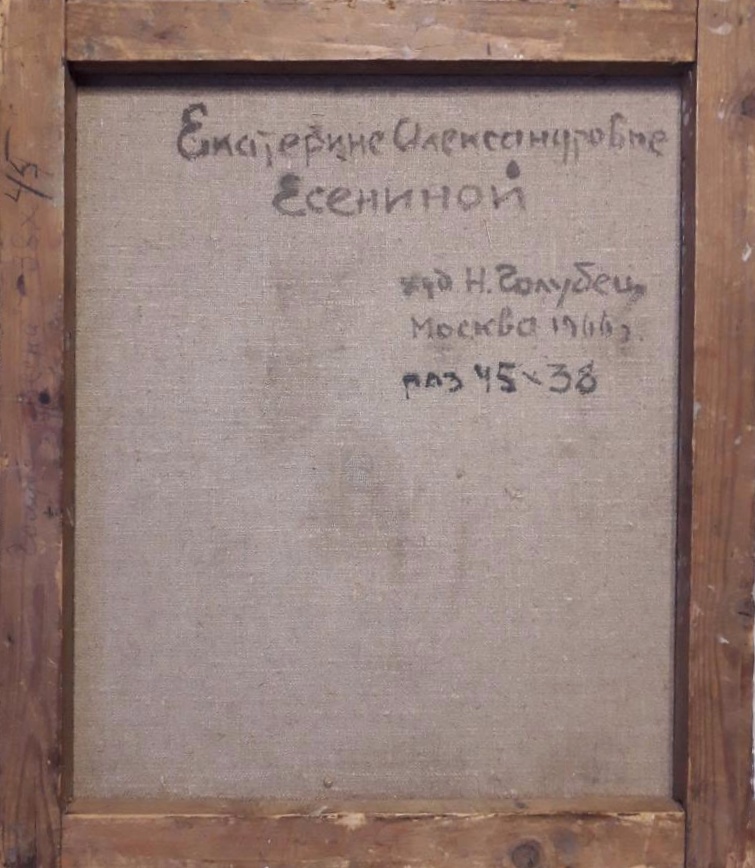 Екатерине Александровне
Есениной
худ Н. Голубец
Москва 1966 г.
раз 45 x 38
45